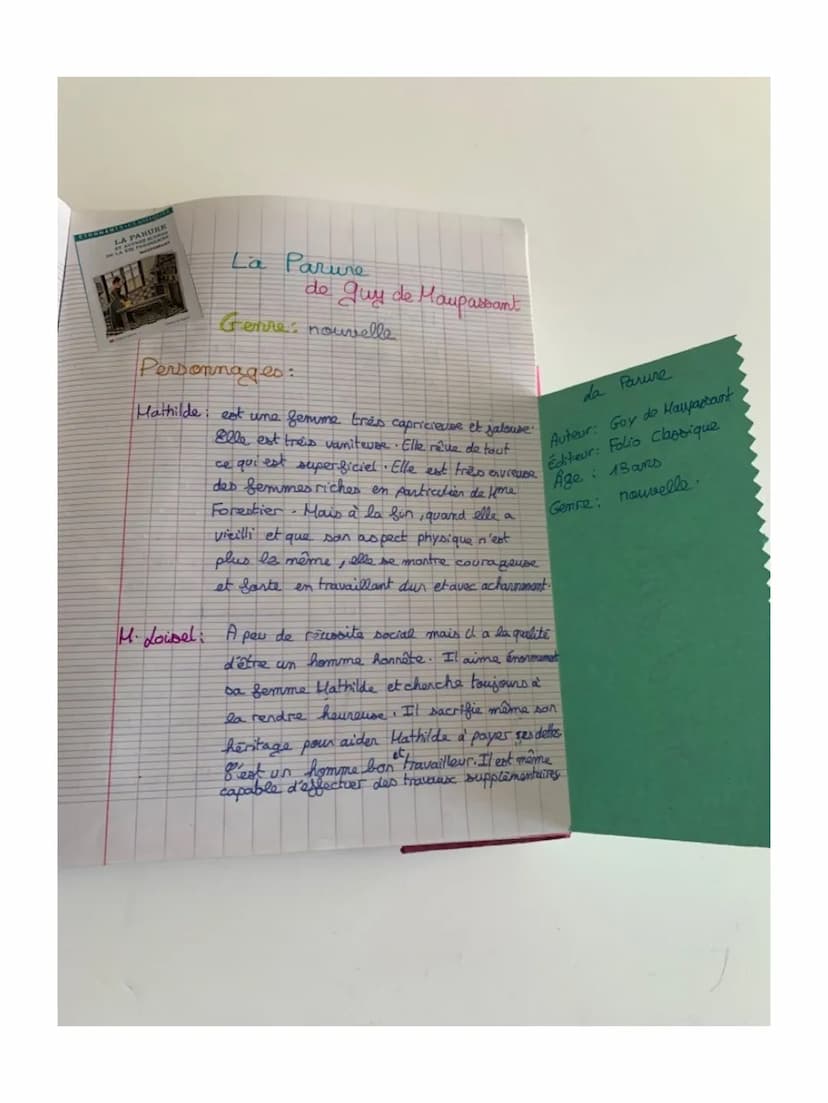 LA PARURE
ET AUTRES SCÈNES
DE LA VIE PARISIENNE
La Parure
de Guy de Maupassant
Genre : nouvelle
Personnages :
Mathilde : est une femme très capricieuse et jalouse.
Elle est très vaniteuse. Elle rêve de tout
ce qui est superficiel. Elle est très envieuse
des femmes riches en particulier de Mme
Forestier. Mais à la fin, quand elle a
vieilli et que son aspect physique n'est
plus le même, elle se montre courageuse
et forte en travaillant dur et avec acharnement.
M. Loisel : A peu de réussite social mais il a la qualité
d'être un homme honnête. Il aime énormement
sa femme Mathilde et cherche toujours à
la rendre heureuse. Il sacrifie même son
héritage pour aider Mathilde à payer ses dettes
C'est un homme bon et travailleur. Il est même
capable d'effectuer des travaux supplémentaires
La Parure
Auteur : Guy de Maupassant
Éditeur : Folio Classique
Âge : 13 ans
Genre : nouvelle.